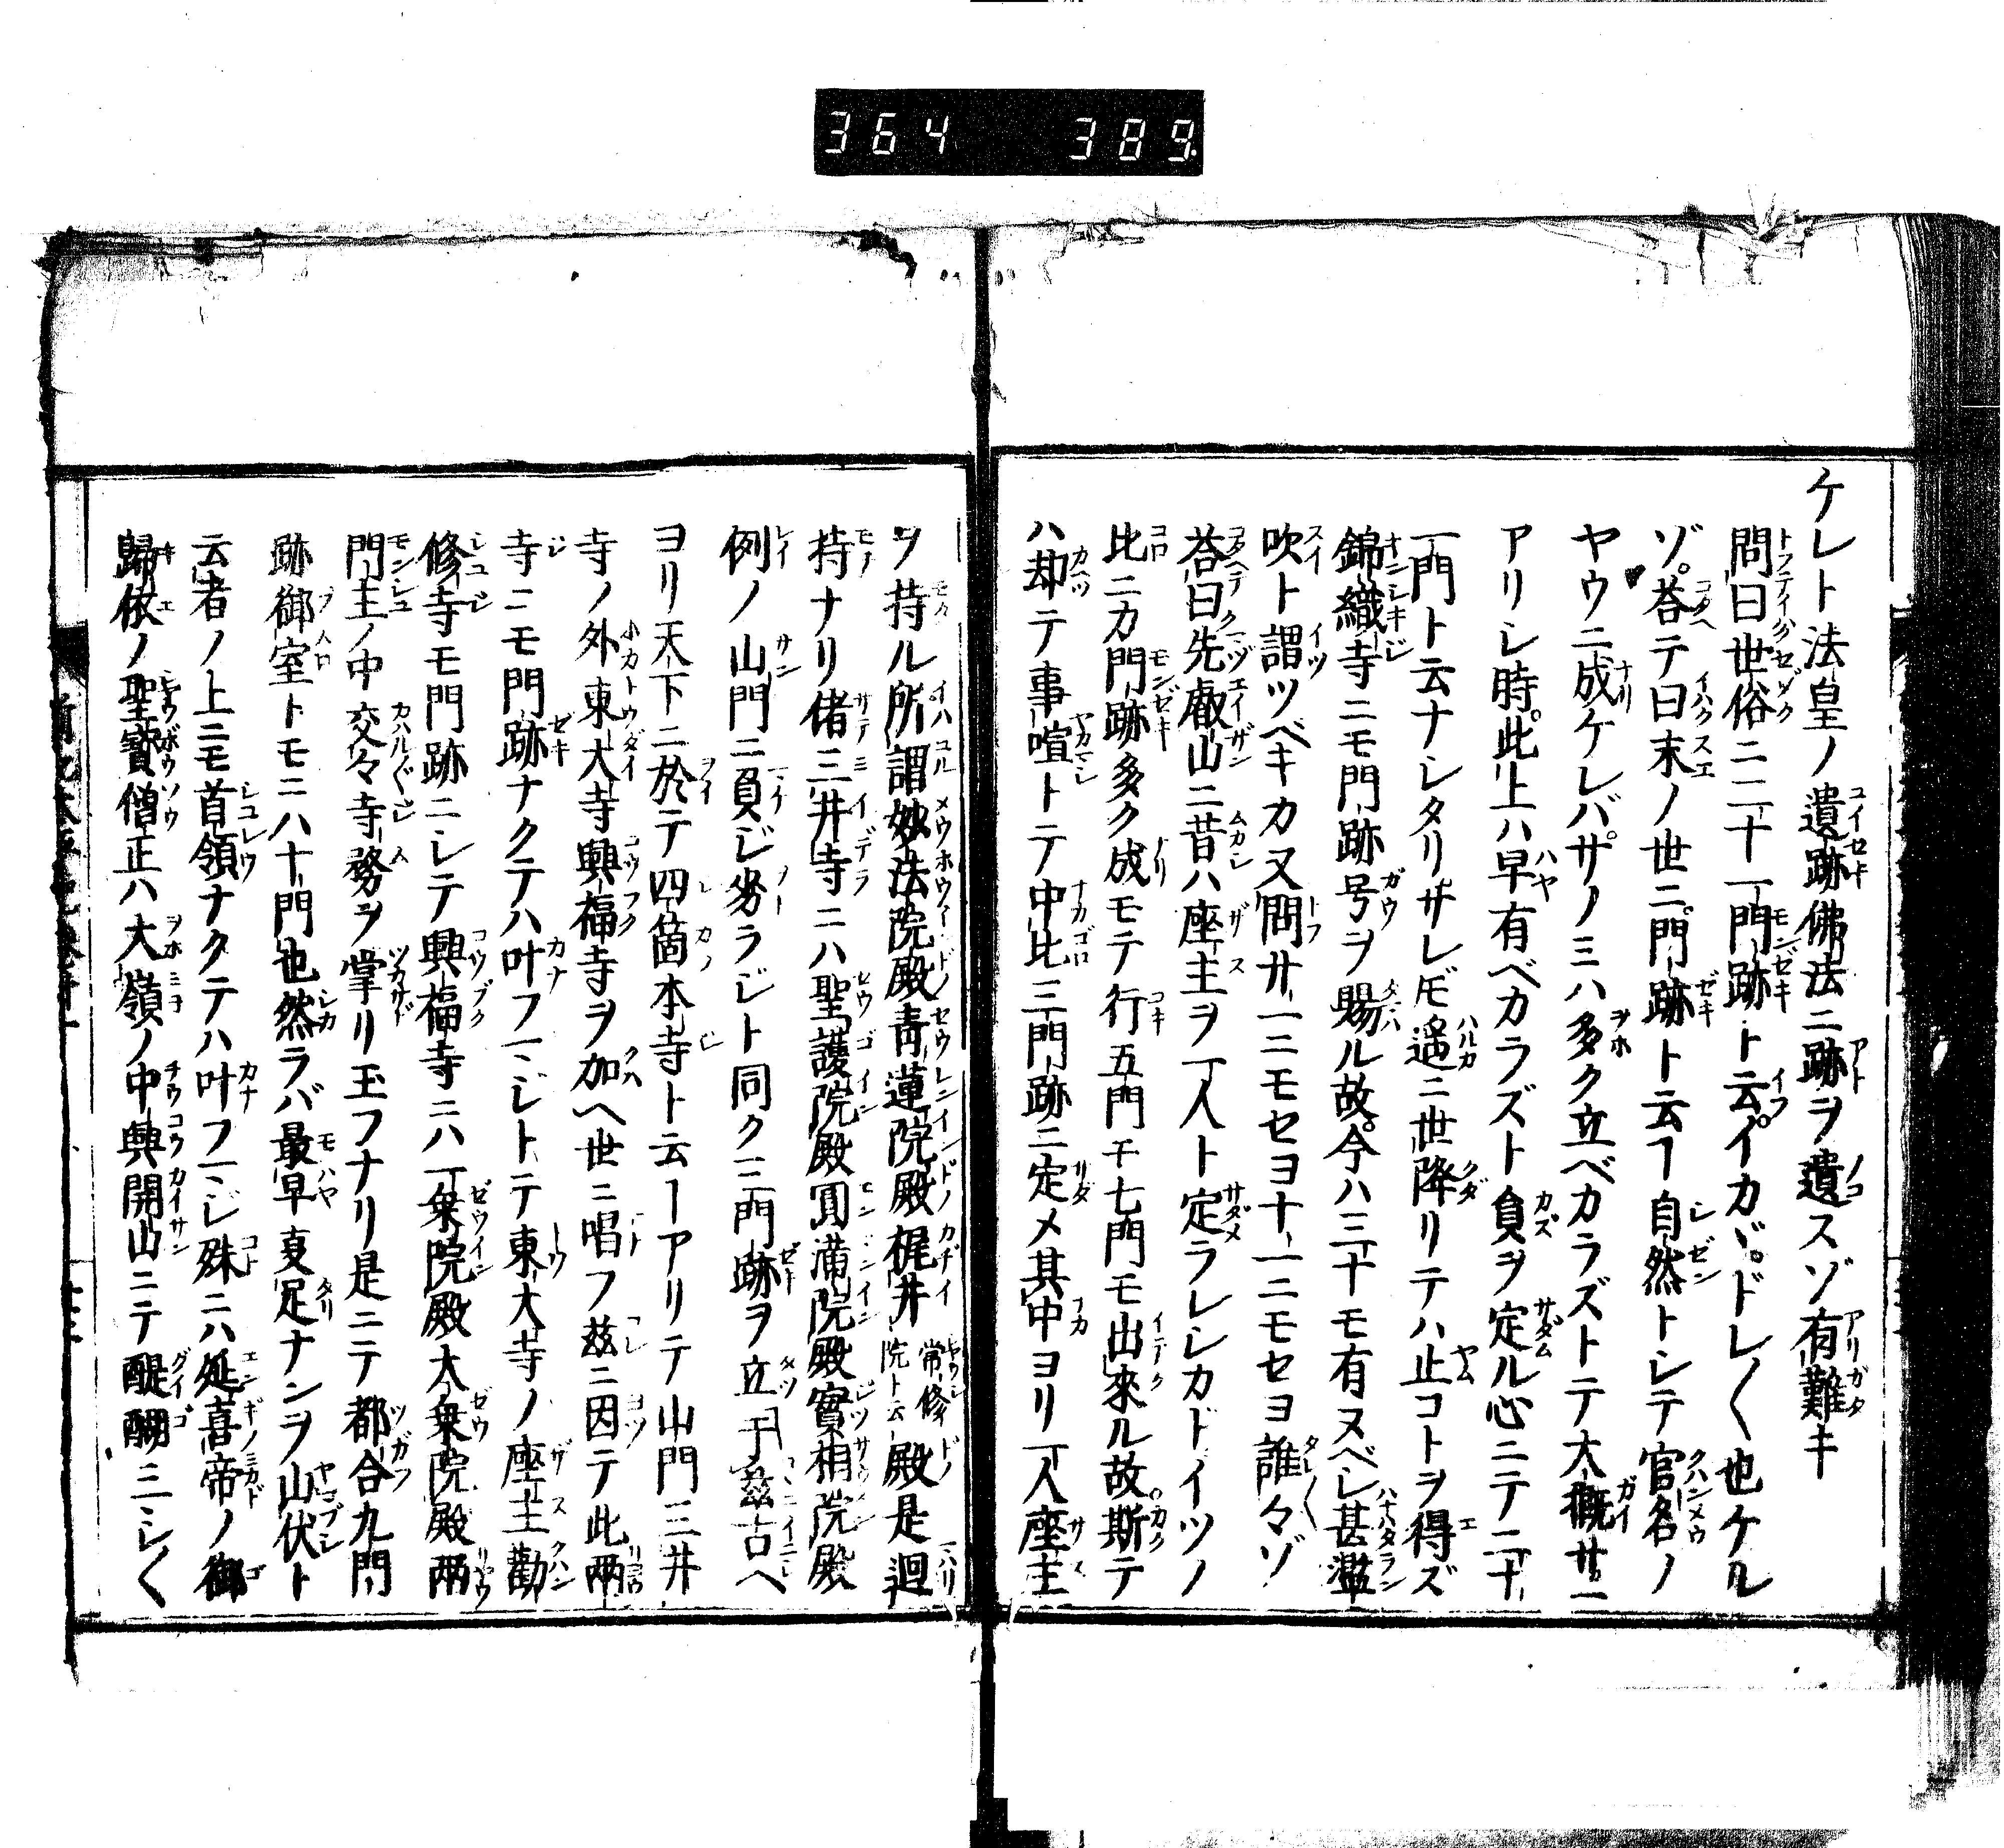 364 389
ケレト法皇ノ遺跡佛法ニ跡ヲ遺スゾ有難キ
問曰世俗ニ二十一門跡ト云イカヾドレ〱也ケル
ゾ答テ曰末ノ世ニ門跡ト云フ自然トシテ官名ノ
ヤウニ成ケレバサノミハ多ク立ベカラズトテ大概サニ
アリシ時此上ハ早有ベカラズト負ヲ定ル心ニテ二十
一門ト云ナシタリサレ𪜈遥ニ世降リテハ止コトヲ得ズ
錦織寺ニモ門跡号ヲ賜ル故今ハ三十モ有ヌベシ甚濫
吹ト謂ツベキカ又問廿一ニモセヨ十一ニモセヨ誰々ゾ
答曰先叡山ニ昔ハ座主ヲ一人ト定ラレシカドイツノ
比ニカ門跡多ク成モテ行五門モ七門モ出來ル故斯テ
ハ却テ事喧トテ中比三門跡ニ定メ其中ヨリ一人座主
ヲ持ル所謂妙法院殿青蓮院殿梶井常修院ト云殿是廻
持ナリ偖三井寺ニハ聖護院殿圓滿院殿實相院殿
例ノ山門ニ負ジ劣ラジト同ク三門跡ヲ立于茲古ヘ
ヨリ天下ニ於テ四箇本寺ト云ーアリテ山門三井
寺ノ外東大寺興福寺ヲ加ヘ世ニ唱フ茲ニ因テ此兩
寺ニモ門跡ナクテハ叶フマジトテ東大寺ノ座主勸
修寺モ門跡ニシテ興福寺ニハ一乗院殿大乗院殿兩
門主ノ中交々寺務ヲ掌リ玉フナリ是ニテ都合九門
跡御室トモニハ十門也然ラバ最早事足ナンヲ山伏ト
云者ノ上ニモ首領ナクテハ叶フマジ殊ニハ延喜帝ノ御
歸依ノ聖寳僧正ハ大嶺ノ中興開山ニテ醍醐ニマシ〱